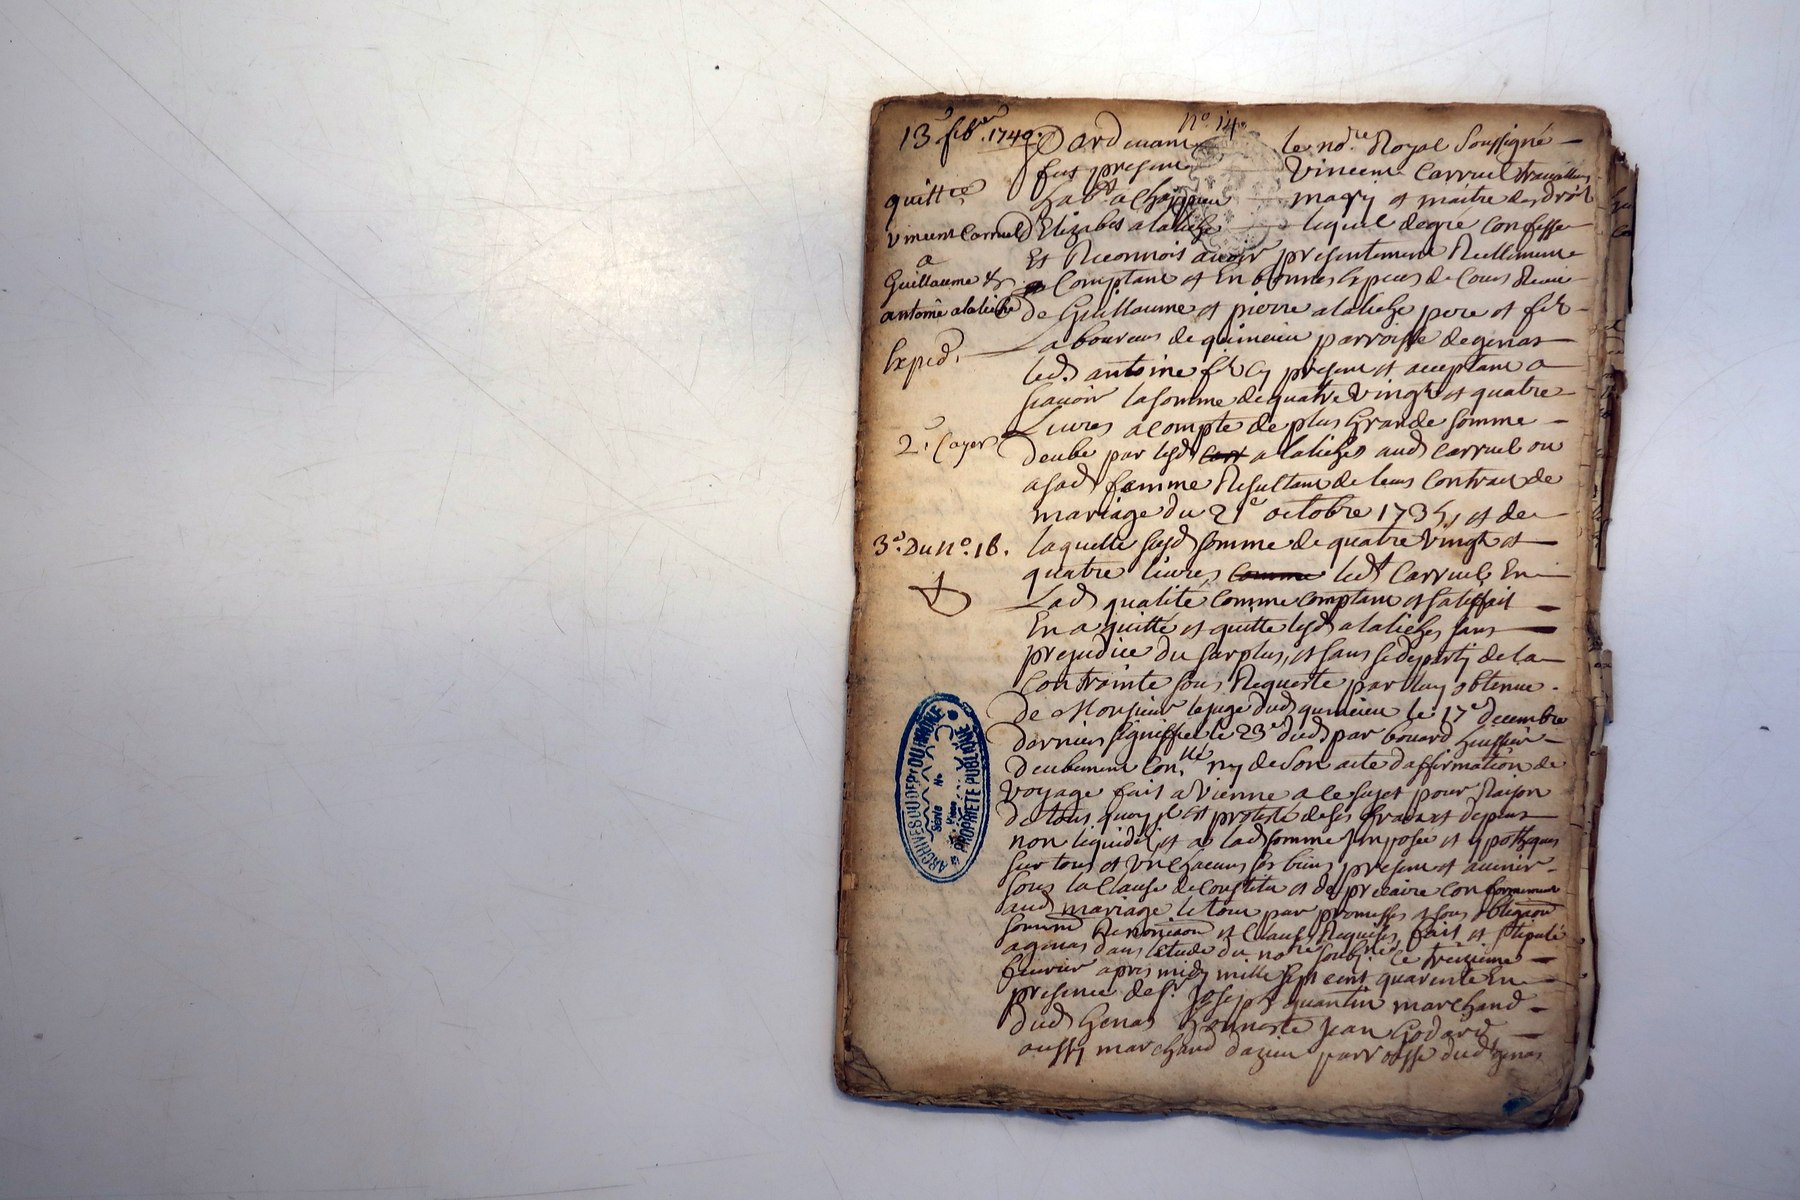 13e febver 1740.
No. 14.
quittce
vincent Carruel
a
Guillaume &
antoine alaliche
Exped.
2e. Cayer
3e. Du no. 18.
Pardevant le nore Royal soussigné
fut present Vincent Carruel travailleur
habt a mary et maitre des droit
Elizabet alaliche lequel de gré confesse
Et Reconnois avoir presentement Reellement
Comptant et En bonnes Especes de Cours Receu
de Guillaume et pierre alaliche pere et fils
Laboureurs de quimieu parroisse de genas
led antoine fils cy present et acceptant a
scavoir la somme de quatre vingt et quatre
Livres a compte de plus Grande somme
deube par lesd alaliches aud Carruel ou
a sad femme Resultant de leur Contract de
mariage du 21e octobre 1735, et de
laquelle susd somme de quatre vingt et
quatre livres led Carruel En
Lad qualité comme comptant et satisfait
En a quitté et quitte lesd alaliches sans
prejudice du surplus, et sans se departi de la
Contrainte sous Requeste par luy obtenue
de Monsieur le juge dud quimieu le 17e decembre
dernier signiffiée le 23e dud par bouard huissier
deubement Conlle ny de son acte d'affirmation de
voyage fait a Vienne a ce sujet pour Raison
de tous quoy il est protesté de ses et depens
non liquidés, et a lad somme Imposée et ypotheques
sur tous et Un chacuns ses biens present et avenir
sous la Clause de Constitu et de precaire conformement
aud mariage le tout par promesses et sous obligaon
Renonciaon et Clauses Requises fait et stipulé
a genas dans l'etude du nore soubzné le treizieme
fevrier apres midy mille sept cent quarente En
presence de sr. Joseph quantin marchand
dud Genas honneste Jean Godard
aussy marchand d'azieu parroisse dud genas
ARCHIVES DU DEPT DU RHÔNE
Série
No
Pièce
PROPRIÉTÉ PUBLIQUE